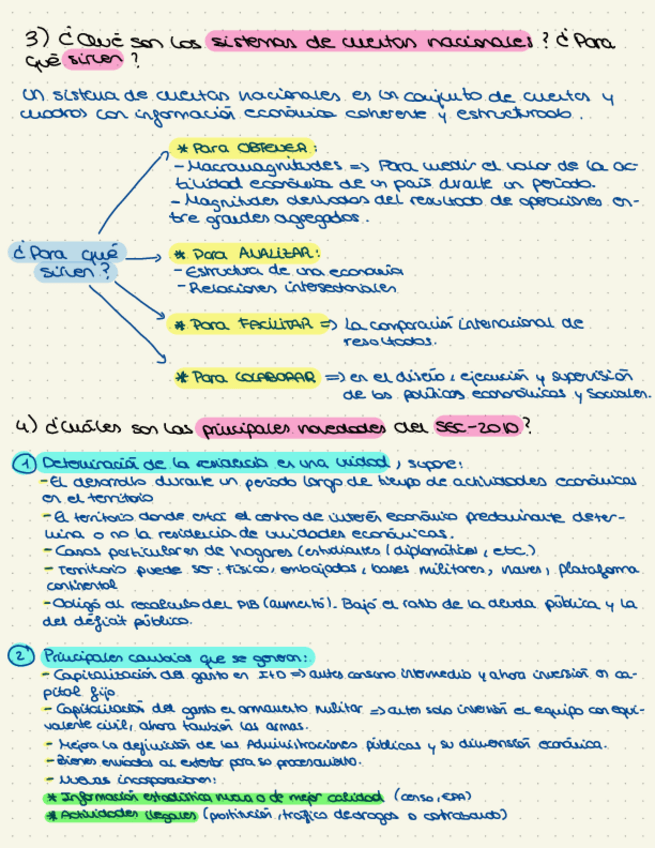 3) ¿Qué son los sistemas de cuentas nacionales? ¿Para
qué sirven?
Un sistema de cuentas nacionales es un conjunto de cuentas y
cuadros con información económica coherente y estructurado.
* Para OBTENER:
- Macromagnitudes => Para medir el valor de la ac-
tividad económica de un país durante un periodo.
- Magnitudes derivadas del resultado de operaciones en-
tre grandes agregados.
¿Para qué
sirven?
* Para ANALIZAR:
- Estructura de una economía
- Relaciones intersectoriales
* Para FACILITAR => La comparación internacional de
resultados.
* Para COLABORAR => en el diseño, ejecución y supervisión
de las políticas económicas y sociales.
4) ¿Cuáles son las principales novedades del SEC-2010?
1 Determinación de la residencia en una unidad, supone:
- El desarrollo durante un periodo largo de tiempo de actividades económicas
en el territorio
- El territorio donde está el centro de interés económico predominante deter-
mina o no la residencia de unidades económicas.
- Casos particulares de hogares (estudiantes, diplomáticos, etc.)
- Territorio puede ser: físico, embajadas, bases militares, naves, plataforma
continental
- Obligó al recalculo del PIB (aumentó). Bajó el ratio de la deuda pública y la
del déficit público.
2 Principales cambios que se generan:
- Capitalización del gasto en I+D => antes consumo intermedio y ahora inversión en ca-
pital fijo
- Capitalización del gasto en armamento militar => antes solo inversión el equipo con equi-
valente civil, ahora también las armas.
- Mejora la definición de las Administraciones públicas y su dimensión económica.
- Bienes enviados al exterior para su procesamiento.
- Nuevas incorporaciones:
* Información estadística nueva o de mejor calidad (censo, EPA)
* Actividades ilegales (prostitución, tráfico de drogas o contrabando)